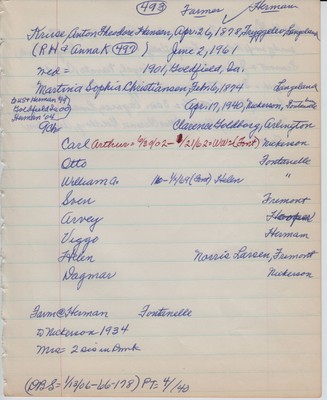 493 Farmer ✓ Herman
Kruse, Anton Theodore Hansen, Apr. 26, 1878, Langeland
(RH & Anna K 492) June 2, 1961
Wed = 1901, Goldfield, Ia.
Martina Sophia Christiansen, Feb. 6, 1874 Langeland
to US & Herman '94 Apr. 17, 1940, Nickerson, Fontenelle
Goldfield 2000
Herman '04
9Ch Clarence Goldborg, Arlington
Carl Arthur = 6/30/02 - 9/21/62 = WW2 (Font) Nickerson
Otto Fontenelle
William A. 110 - 1/4/69 (Font) Helen "
Sven Fremont
Arvey Hooper
Viggo Hermam
Helen Norris Larsen, Fremont
Dagmar Nickerson
Farm @ Herman Fontenelle
To Nickerson 1934
Mrs = 2 sis in Dmk
(DBS = 1/12/06-L6-178) PT = 4/40